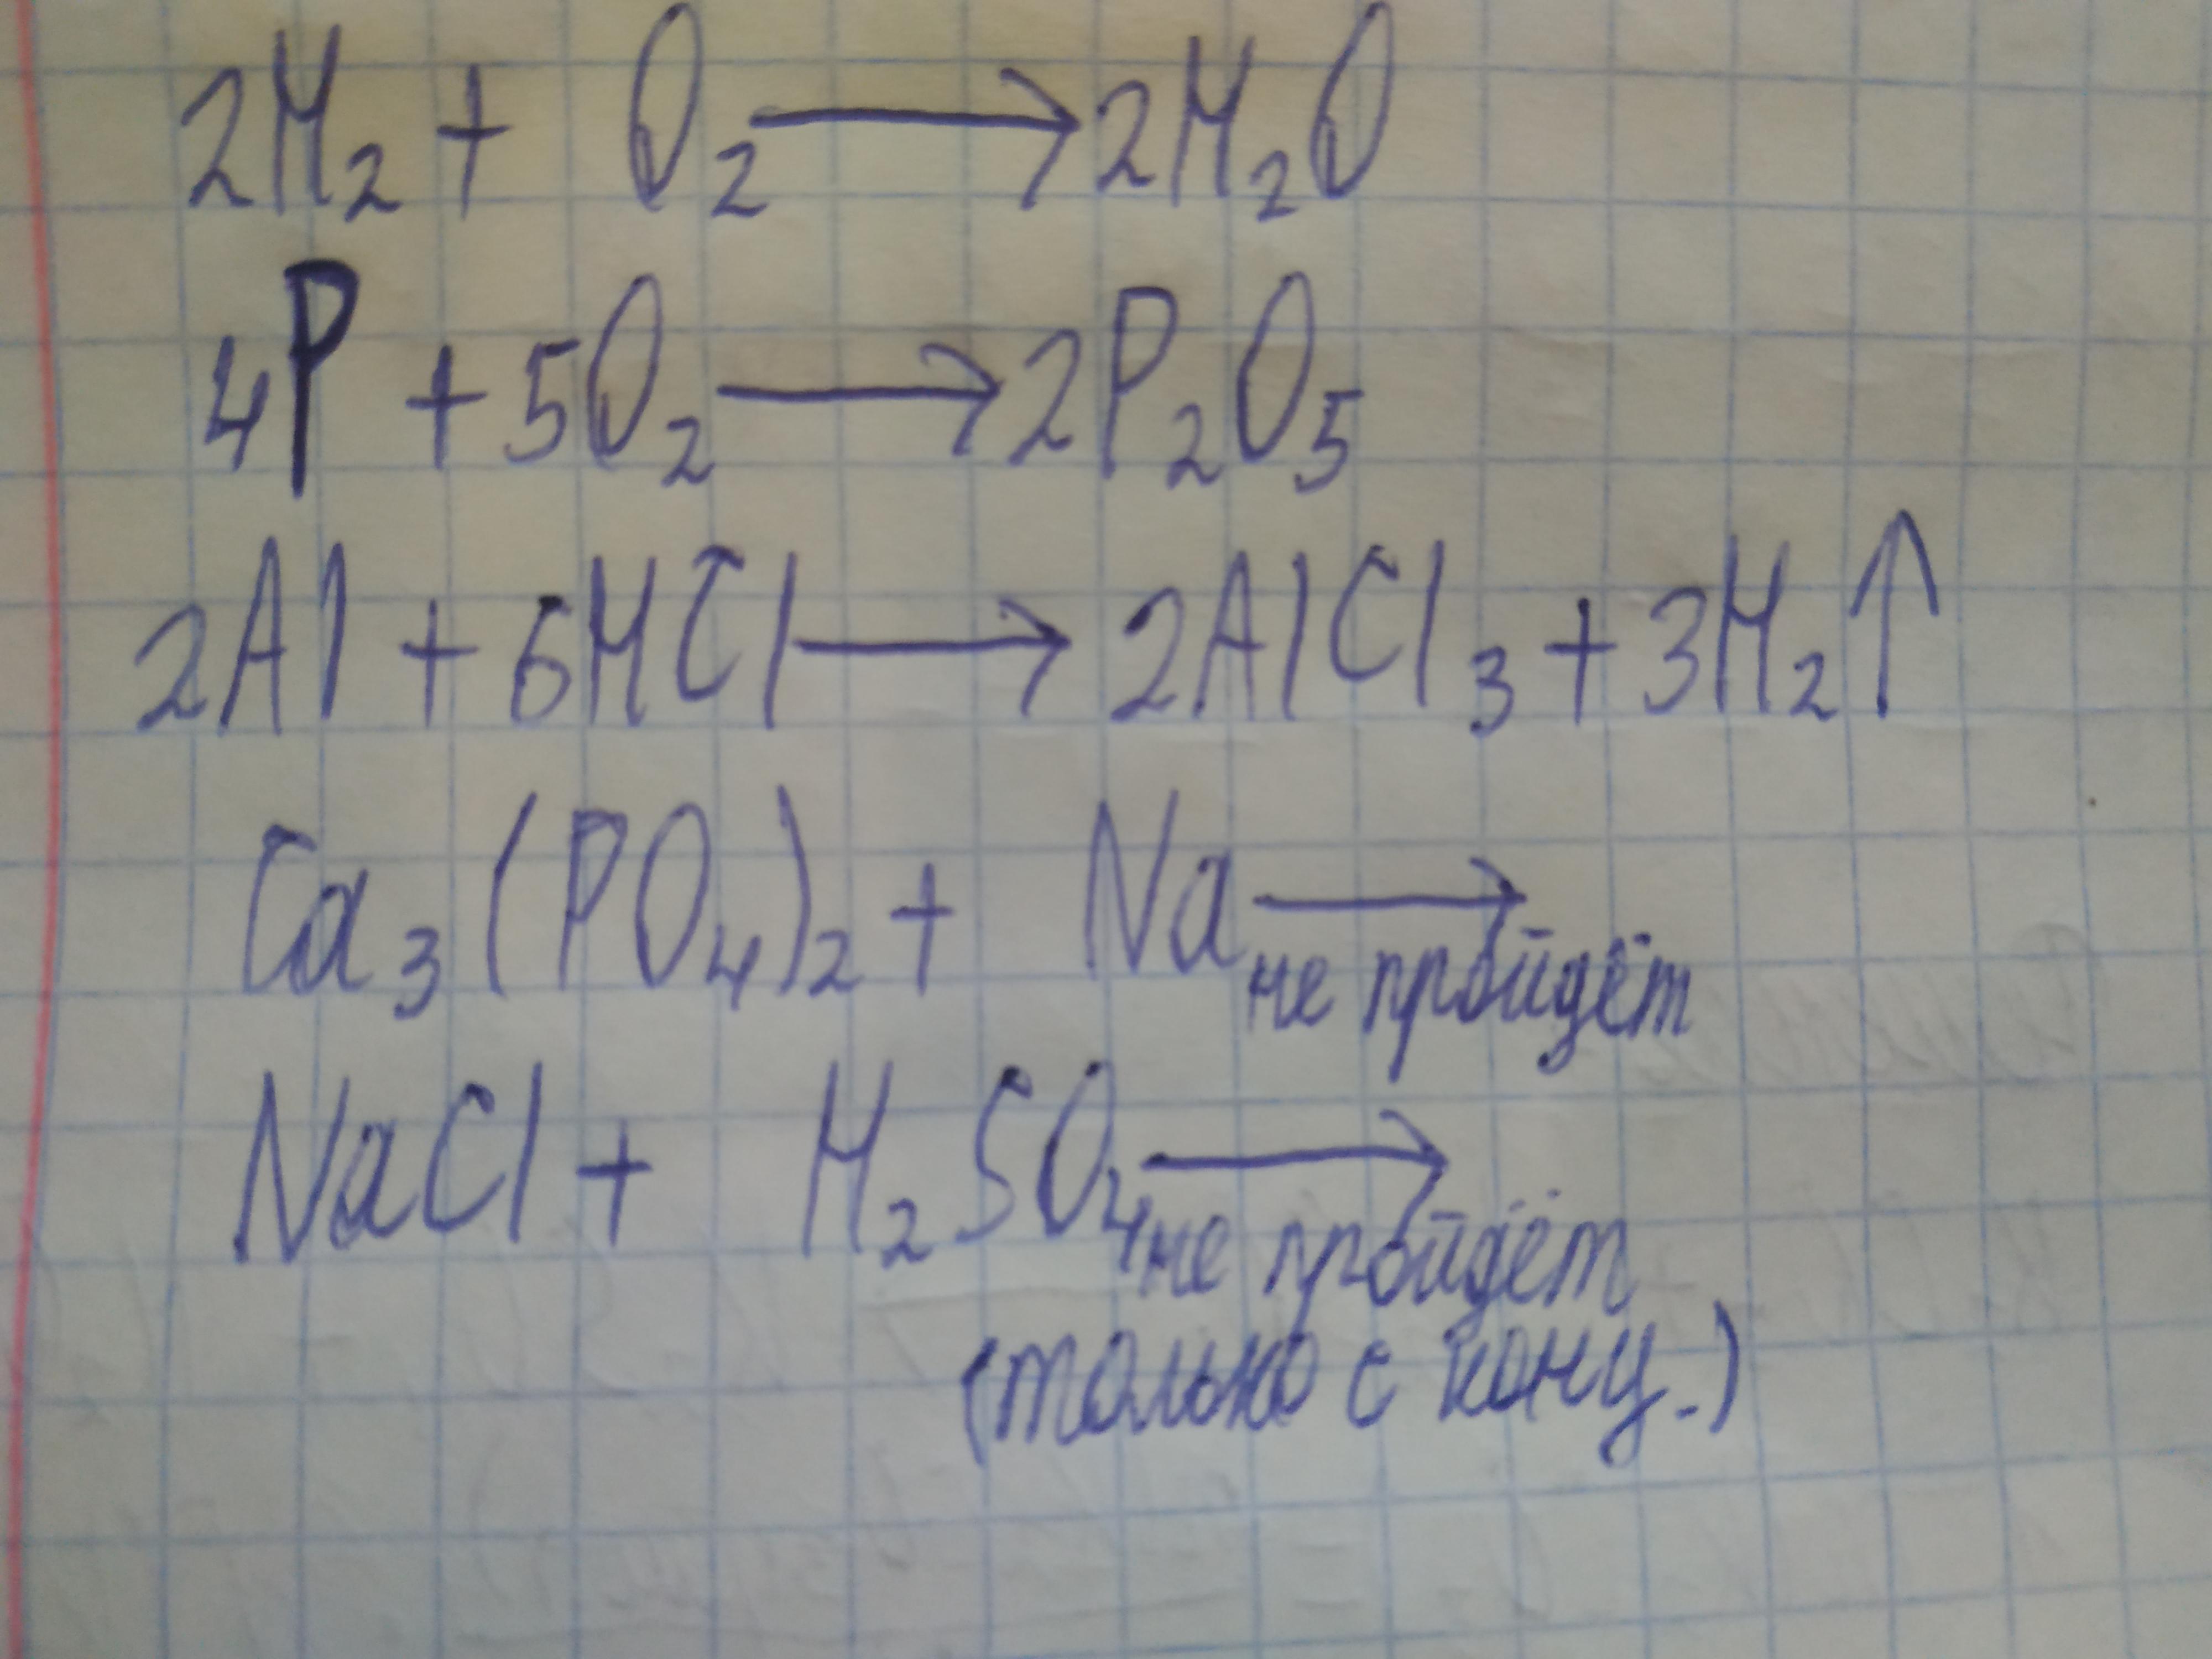 2H₂ + O₂ → 2H₂O
4P + 5O₂ → 2P₂O₅
2Al + 6HCl → 2AlCl₃ + 3H₂↑
Ca₃(PO₄)₂ + Na →
не пройдёт
NaCl + H₂SO₄ →
не пройдёт
(только с конц.)